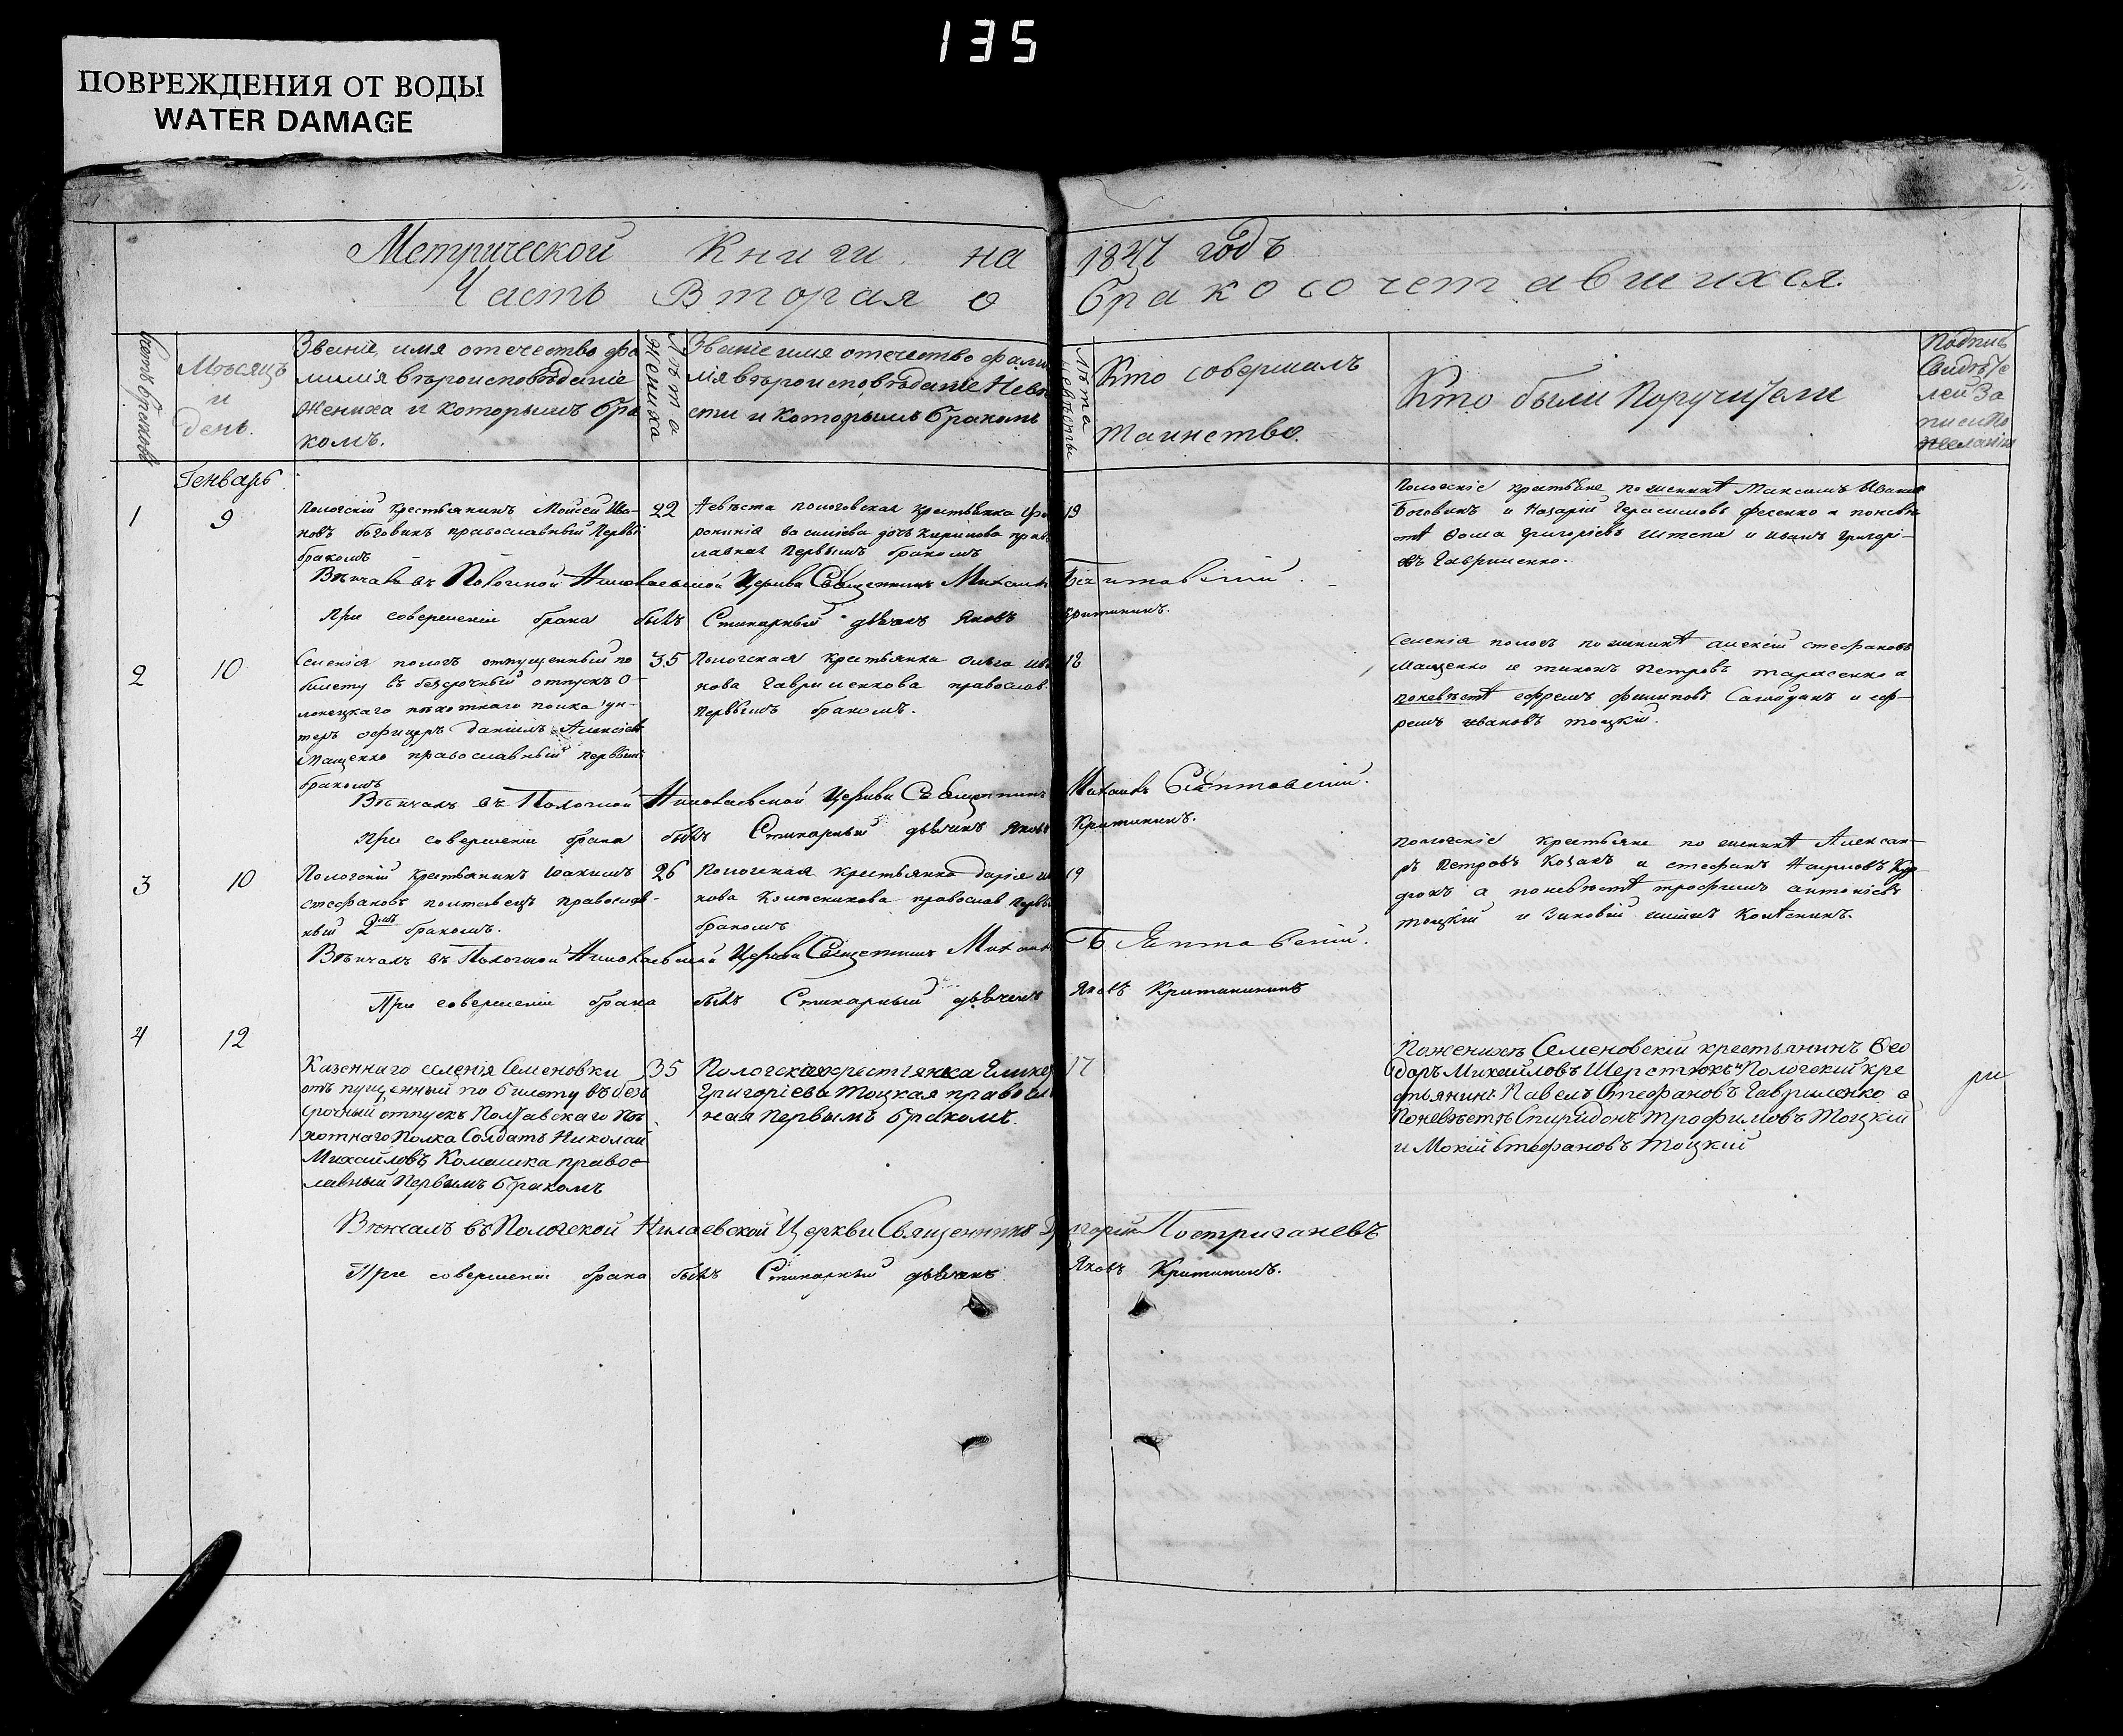 135
ПОВРЕЖДЕНИЯ ОТ ВОДЫ
WATER DAMAGE
Метрической Книги на 1847 годъ
Часть Вторая о бракосочетавшихся
Счетъ браковъ
Мѣсяцъ
и
день.
Званіе, имя отечество фа
милія вѣроисповѣданіе
Жениха и которымъ бра
комъ.
Лѣта
Жениха
Званіе имя отечество фами
лія вѣроисповѣданіе Невѣ
сти и которымъ бракомъ
Лѣта
невѣсты
Кто совершалъ
таинство.
Кто были Поручители
Подпись
Свидѣте
лей За
писи по
желанію
Генварь
1
9
Пологскій крестьянинъ Моисей Ива-
новъ боговинъ православный Первы
бракомъ
22
Невѣста пологовская крестьянка
василіева дочь Кирилова прав
славная Первымъ бракомъ
19
Пологскіе крестьяне по женихѣ Максимъ Ивановъ
Боговинъ и Назарій Герасимовъ фесенко а поневѣ
стѣ Фома григоріевъ Штепа и иванъ григорі-
евъ Гавриленко.
Вѣнчалъ въ Пологской Николаевской Церкви Священникъ Михаилъ
При совершеніи брака былъ Стихарный дьячекъ Яковъ Критининъ.
2
10
Селенія пологъ отпущенный по
билету въ безсрочный отпускъ О-
лонецкаго пѣхотнаго полка ун-
теръ офицеръ Даніилъ Алексіевъ
Мащенко православный первымъ
бракомъ
35
Пологская крестьянка Ольга ива
нова Гавриленкова православ.
Первымъ бракомъ.
18
Селенія пологъ по женихѣ алексій стефановъ
Мащенко и тихонъ Петровъ тарасенко а
поневѣстѣ ефремъ филиповъ Самойданъ и еф-
ремъ ивановъ тоцкій.
Вѣнчалъ въ Пологской Николаевской Церкви Священникъ Михаилъ
При совершеніи брака былъ Стихарный дьячикъ Яковъ Критинкинъ.
3
10
Пологскій крестьянинъ Іоакимъ
стефановъ полтавецъ православ-
ный 2мъ бракомъ.
26
Пологская крестьянка дарія ив
нова православ Первы
бракомъ
19
пологскіе крестьяне по женихѣ Алексан-
ръ Петровъ Козакъ и стефанъ Наумовъ
а поневѣстѣ трофимъ антоніевъ
тоцкій и Зиновій
Вѣнчалъ въ Пологской Николаевской Церкви Священникъ Михаилъ
При совершеніи брака былъ Стихарный дьячекъ Яковъ Критинкинъ
4
12
Казеннаго селенія Семеновки
отъ пущенный по билету въ без
срочный отпускъ Полтавскаго Пѣ
хотнаго Полка Солдатъ Николай
Михайловъ Комашка правос-
лавный Первымъ бракомъ
35
Пологская крестіянка Гликер
Григоріева Тоцкая правосла
ная Первымъ бракомъ.
17
Поженихѣ Семеновскій крестьянинъ Фео
доръ Михайловъ Шерстюкъ и Пологскій кре
стьянинъ Павелъ Стефановъ Гавриленко а
Поневѣстѣ Спиридонъ Трофимовъ Тоцкій
и Мокій Стефановъ Тоцкій
Вѣнчалъ въ Пологской Нилаевской Церкви Священникъ Григорій Постригачевъ
При совершеніи брака былъ Стихарный дьячекъ Яковъ Критинкинъ.